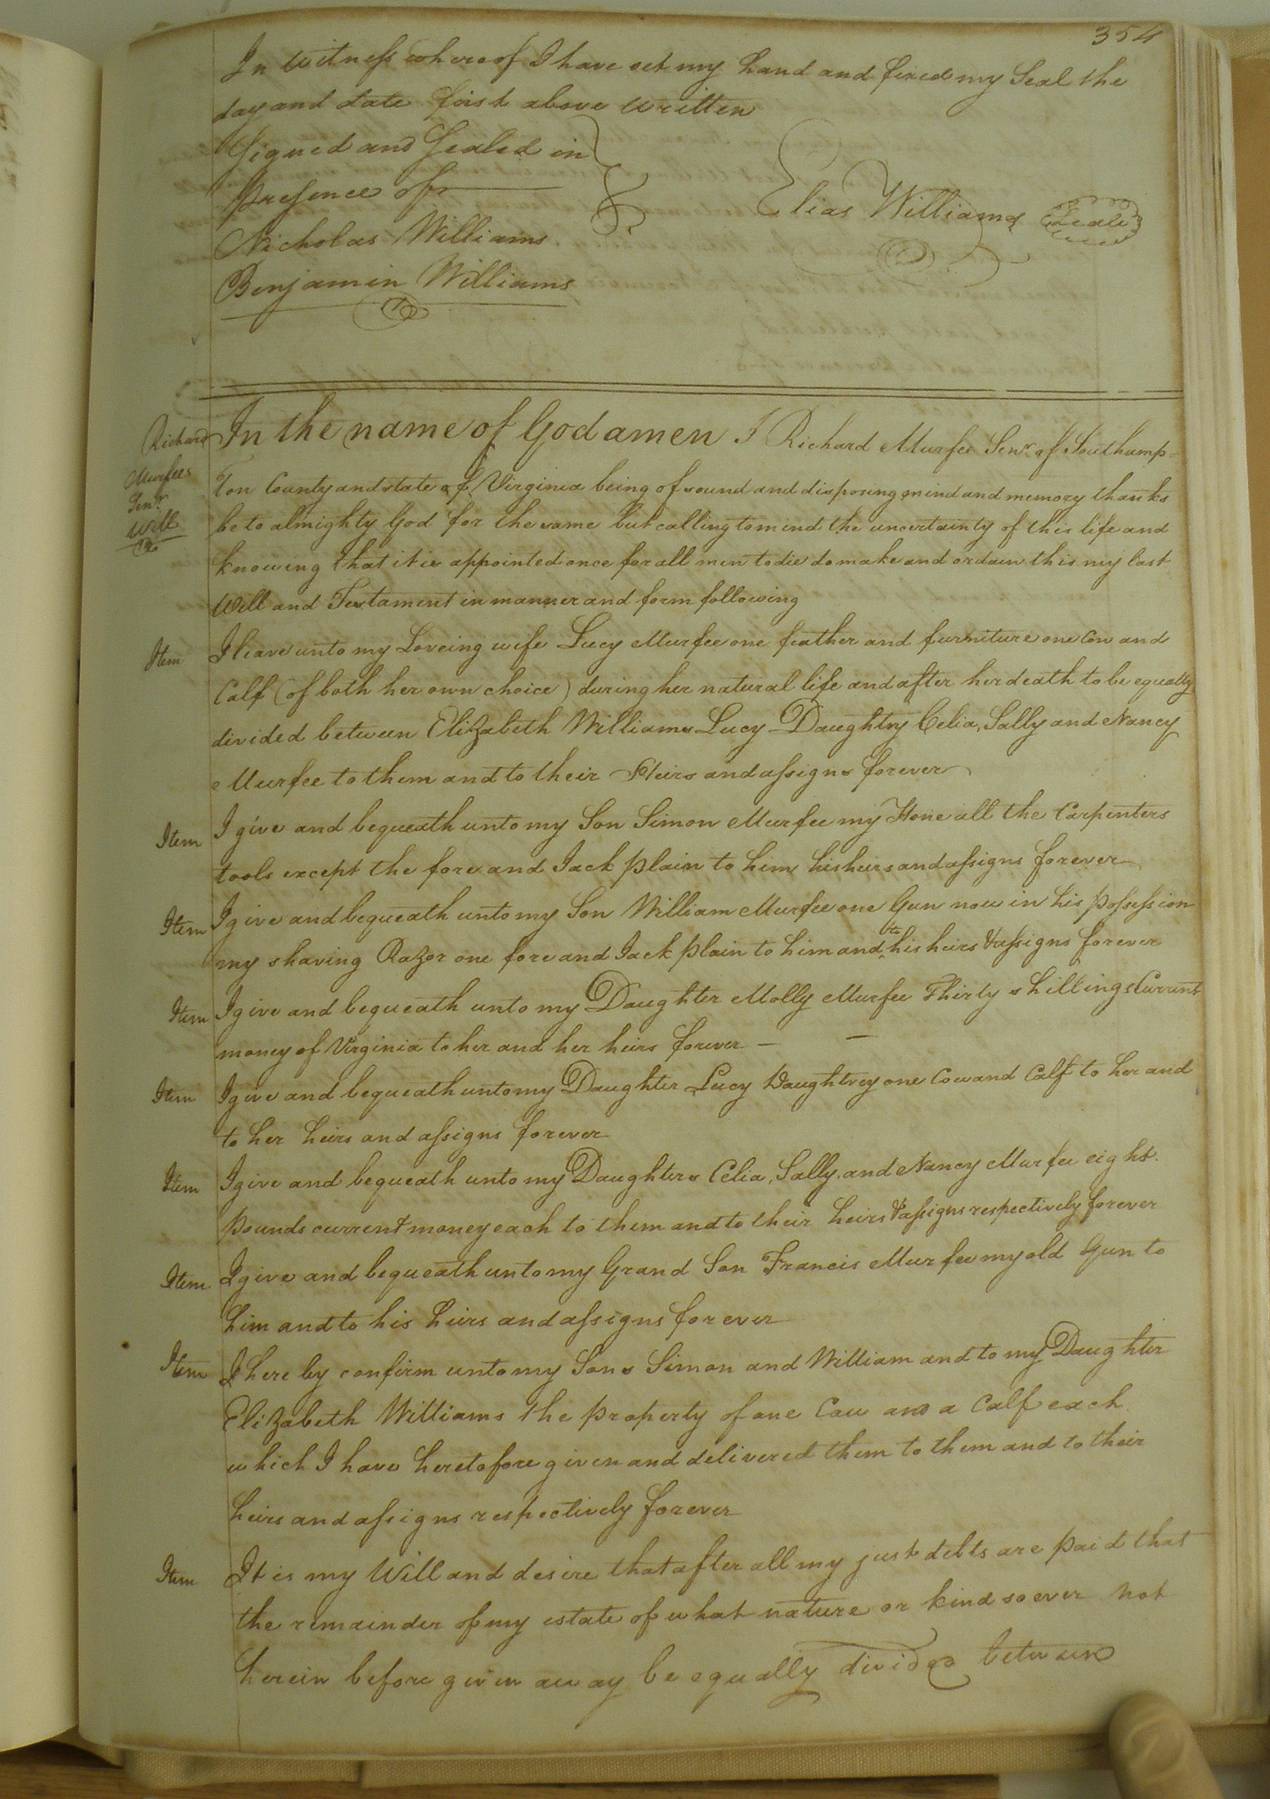 354
In Witness whereof I have set my hand and fixed my Seal the
day and date first above written
Signed and Sealed in
presence of
Elias Williams Seal
Nicholas Williams
Benjamin Williams
Richard
Murfee
Senr.
Will
In the name of God amen I Richard Murfee Senr. of Southamp-
ton County and state of Virginia being of sound and disposing mind and memory thanks
be to almighty God for the same but calling to mind the uncertainty of this life and
knowing that it is appointed once for all men to die do make and ordain this my last
Will and Testament in manner and form following
Item I leave unto my Loveing wife Lucy Murfee one feather and furniture one Cow and
Calf (of both her own choice) during her natural life and after her death to be equally
divided between Elizabeth Williams Lucy Daughtry Celia, Sally and Nancy
Murfee to them and to their Heirs and assigns forever
Item I give and bequeath unto my Son Simon Murfee my Hone all the Carpenters
tools except the fore and Jack plain to him his heirs and assigns forever
Item I give and bequeath unto my Son William Murfee one Gun now in his possession
my shaving Razor one fore and Jack plain to him and to his heirs & assigns forever
Item I give and bequeath unto my Daughter Molly Murfee Thirty shillings Current
money of Virginia to her and her heirs forever —
Item I give and bequeath unto my Daughter Lucy Daughtrey one Cow and Calf to her and
to her heirs and assigns forever
Item I give and bequeath unto my Daughters Celia, Sally, and Nancy Murfee eight
pounds current money each to them and to their heirs & assigns respectively forever
Item I give and bequeath unto my Grand Son Francis Murfee my old Gun to
him and to his heirs and assigns forever
Item I here by confirm unto my Sons Simon and William and to my Daughter
Elizabeth Williams the property of one Cow and a Calf each
which I have heretofore given and delivered them to them and to their
heirs and assigns respectively forever
Item It is my Will and desire that after all my just debts are paid that
the remainder of my estate of what nature or kind soever not
herein before given away be equally divided between